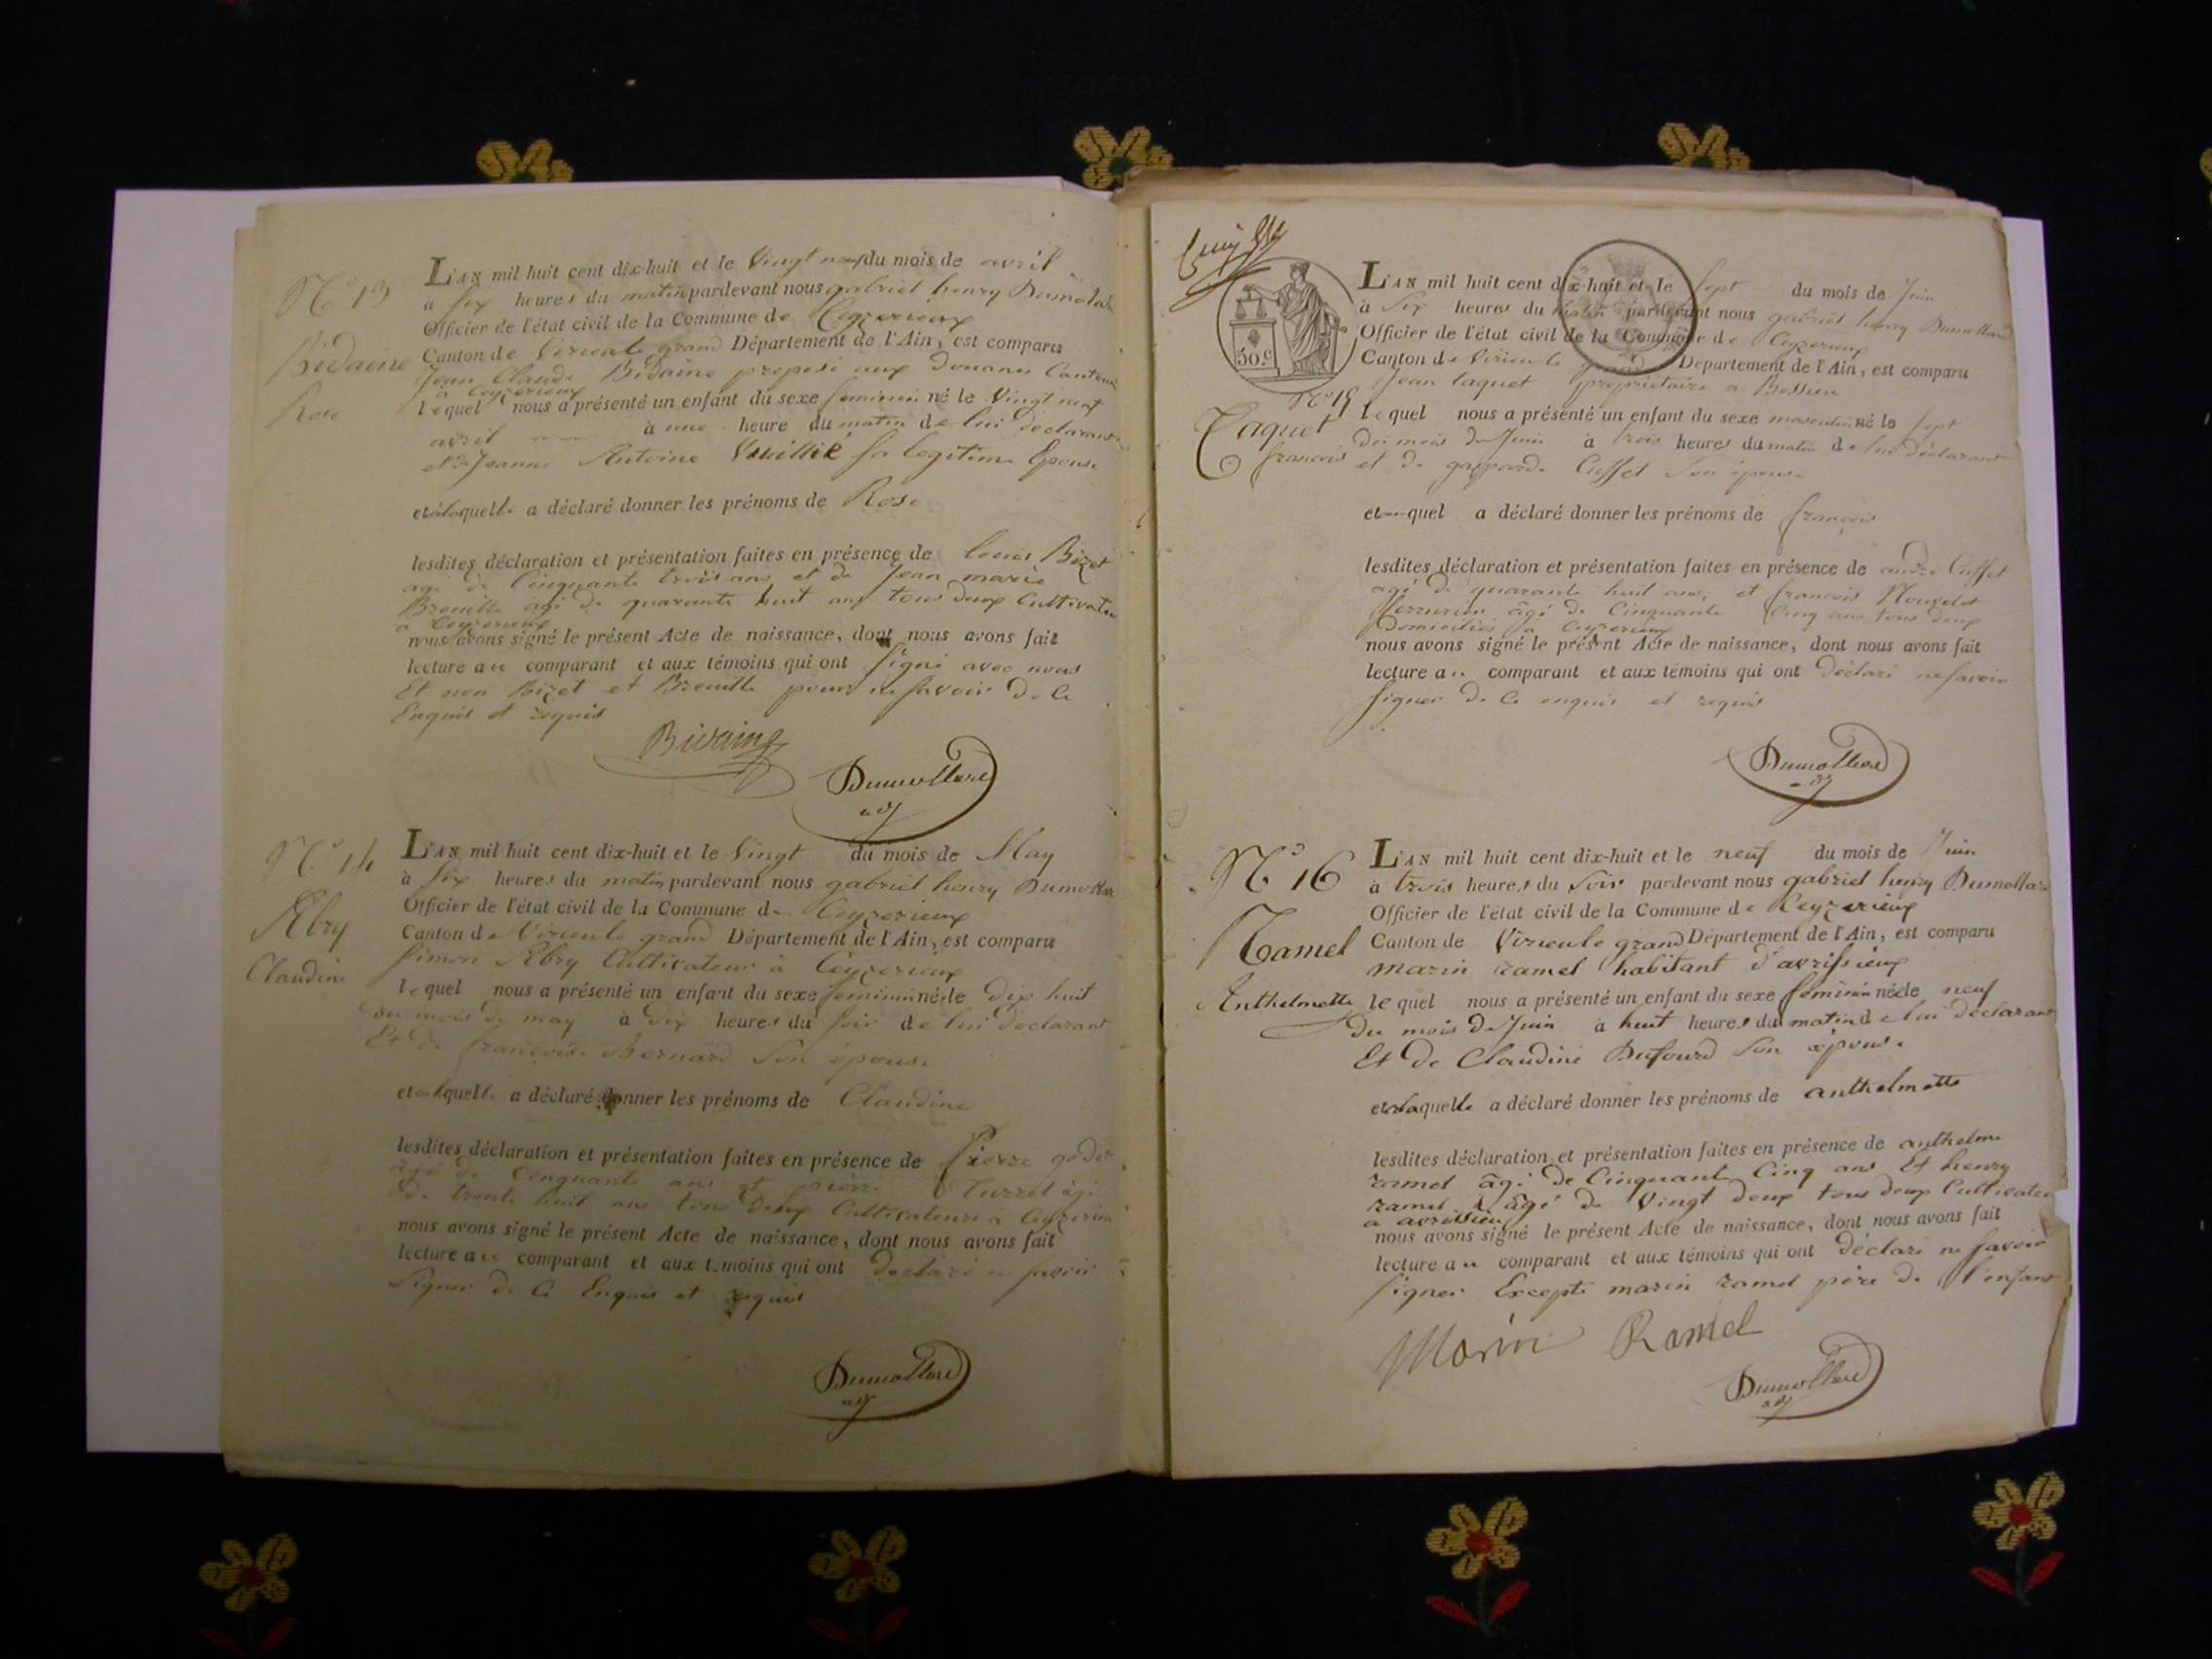 N.o 13
Bidaine
Rose
L'AN mil huit cent dix-huit et le Vingt neuf du mois de avril
à six heures du matin pardevant nous gabriel henry Dumollard
Officier de l'état civil de la Commune de Ceyzerieux
Canton de Virieu le grand Département de l'Ain, est comparu
Jean Claude Bidaine preposé aux Douanes
à Ceyzerieux
lequel nous a présenté un enfant du sexe feminin né le Vingt neuf
avril à une heure du matin de lui déclarant
et de Jeanne Antoine Vuillié sa legitime Epouse
et à laquelle a déclaré donner les prénoms de Rose
lesdites déclaration et présentation faites en présence de louis Bizet
agé de Cinquante trois ans et de Jean marie
Breuille agé de quarante huit ans tous deux Cultivateurs
a Ceyzerieux
nous avons signé le présent Acte de naissance, dont nous avons fait
lecture au comparant et aux témoins qui ont signé avec nous
Et non Bizet et Breuille pour ne savoir de ce
Enquis et requis
Bidaine
Dumollard
adj
N.o 14
Abry
Claudine
L'AN mil huit cent dix-huit et le Vingt du mois de May
à six heures du matin pardevant nous gabriel henry Dumollard
Officier de l'état civil de la Commune de Ceyzerieux
Canton de Virieu le grand Département de l'Ain, est comparu
simon Abry Cultivateur à Ceyzerieux
lequel nous a présenté un enfant du sexe feminin né le dix huit
du mois de may à dix heures du soir de lui déclarant
Et de françoise Bernard son épouse
et à laquelle a déclaré donner les prénoms de Claudine
lesdites déclaration et présentation faites en présence de Pierre godet
âgé de Cinquante ans et pierre Curzet âgé
de trente huit ans tous deux Cultivateurs à Ceyzerieu
nous avons signé le présent Acte de naissance, dont nous avons fait
lecture au comparant et aux témoins qui ont déclaré ne savoir
signer de ce Enquis et requis
Dumollard
adj
50.c
N.o 15
Taquet
francois
L'AN mil huit cent dix-huit et le sept du mois de Juin
à six heures du matin pardevant nous gabriel henry Dumollard
Officier de l'état civil de la Commune de Ceyzerieux
Canton de Virieu le grand Département de l'Ain, est comparu
Jean taquet propriétaire a Bessieu
lequel nous a présenté un enfant du sexe masculin né le sept
du mois de Juin à trois heures du matin de lui déclarant
et de gasparde Cuffet son épouse
et auquel a déclaré donner les prénoms de françois
lesdites déclaration et présentation faites en présence de andré Cuffet
agé de quarante huit ans, et francois
âgé de Cinquante Cinq ans tous deux
Domiciliés a Ceyzerieux
nous avons signé le présent Acte de naissance, dont nous avons fait
lecture au comparant et aux témoins qui ont déclaré ne savoir
signer de ce enquis et requis
Dumollard
adj
N.o 16
Ramel
Anthelmette
L'AN mil huit cent dix-huit et le neuf du mois de Juin
à trois heures du soir pardevant nous gabriel henry Dumollard
Officier de l'état civil de la Commune de Ceyzerieux
Canton de Virieu le grand Département de l'Ain, est comparu
marin ramel habitant d'avrissieux
lequel nous a présenté un enfant du sexe féminin née le neuf
du mois de Juin à huit heures du matin de lui déclarant
Et de Claudine Dufourd son épouse
et à laquelle a déclaré donner les prénoms de anthelmette
lesdites déclaration et présentation faites en présence de anthelme
ramel âgé de Cinquante Cinq ans Et henry
ramel âgé de Vingt deux tous deux Cultivateurs
a avrissieu
nous avons signé le présent Acte de naissance, dont nous avons fait
lecture au comparant et aux témoins qui ont déclaré ne savoir
signer Excepté marin ramel père de l'enfant
Marin Ramel
Dumollard
adj